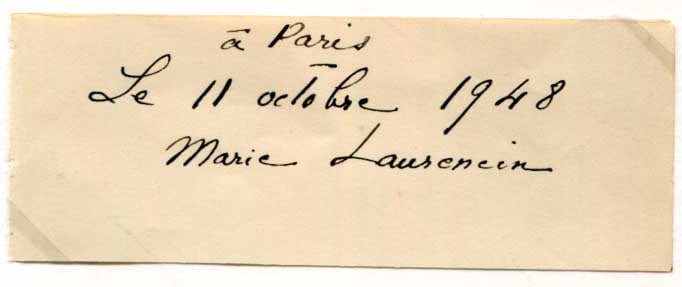 à Paris
Le 11 octobre 1948
Marie Laurencin